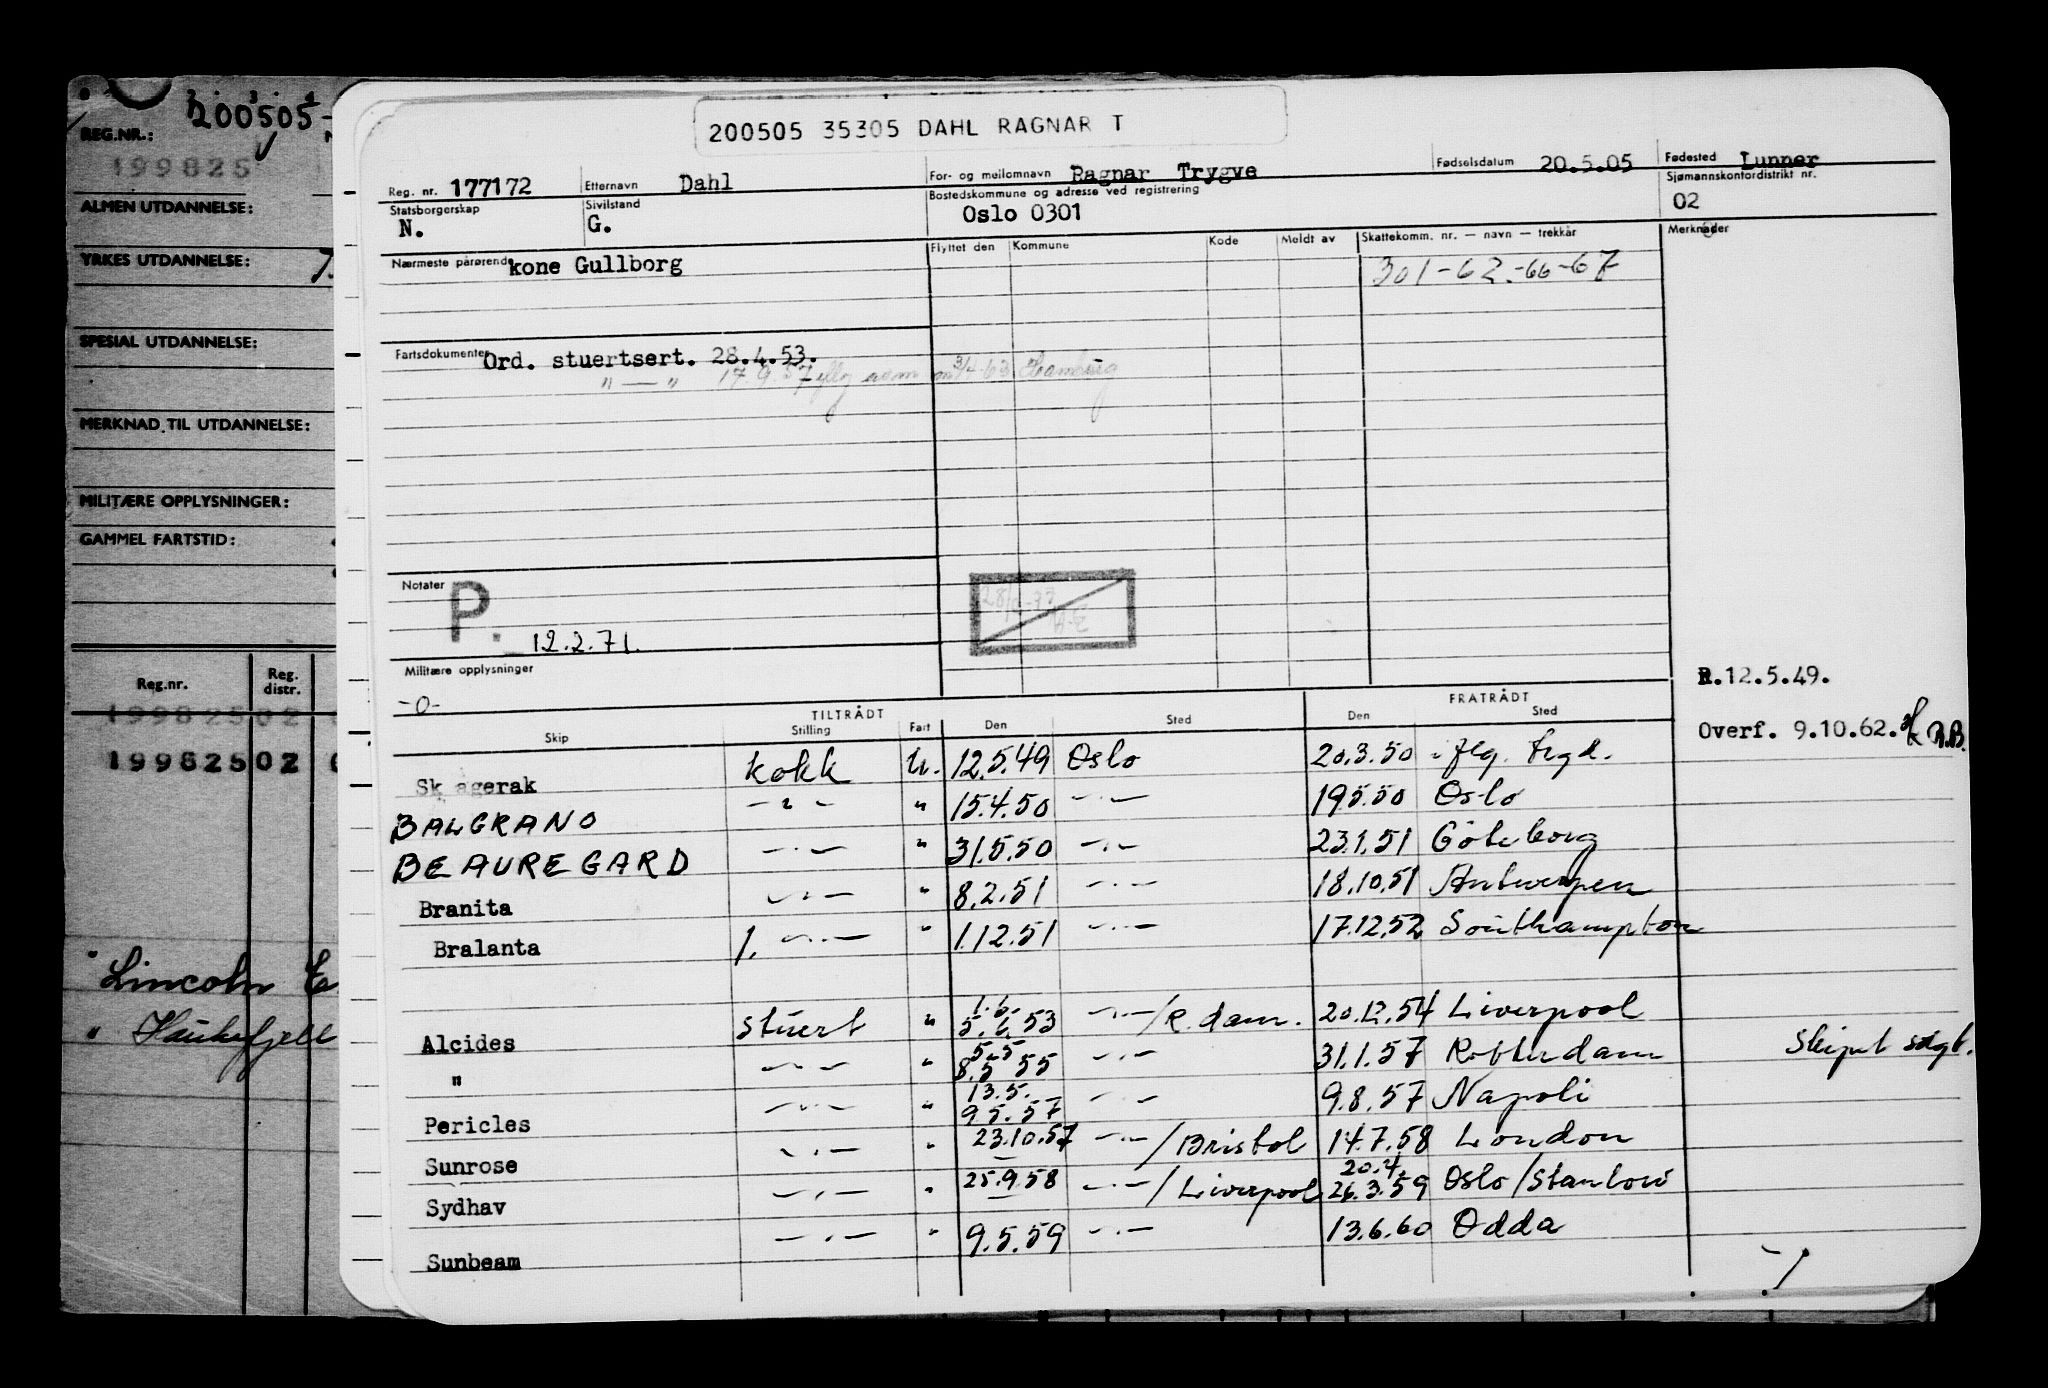 200505
REG.NR.:
199825
ALMEN UTDANNELSE:
YRKES UTDANNELSE:
SPESIAL UTDANNELSE:
MERKNAD TIL UTDANNELSE:
MILITÆRE OPPLYSNINGER:
GAMMEL FARTSTID:
Reg.nr. Reg. distr.
199825 02
199825 02
" Lincoln E
" Haukefjell
200505 35305 DAHL RAGNAR T
Reg. nr. 177172 Etternavn Dahl For- og mellomnavn Ragnar Trygve Fødselsdatum 20.5.05 Fødested Lunner
Statsborgerskap N. Sivilstand G. Bostedskommune og adresse ved registrering Oslo 0301 Sjømannskontordistrikt nr. 02
Nærmeste pårørende kone Gullborg Flyttet den Kommune Kode Meldt av Skattekomm. nr. — navn — trekkår Merknader
301-62-66-67
Fartsdokumenter Ord. stuertsert. 28.4.53.
" — " 17.9.57 3/4-63 Hamburg
Notater
P. 12.2.71.
Militære opplysninger
-0-
R.12.5.49.
Overf. 9.10.62. R.B.
TILTRÅDT FRATRÅDT
Skip Stilling Fart Den Sted Den Sted
Skagerak kokk U. 12.5.49 Oslo 20.3.50 i flg.
BALGRANO — " — " 15.4.50 —"— 19.5.50 Oslo
BEAUREGARD —"— " 31.5.50 —"— 23.1.51 Göteborg
Branita —"— " 8.2.51 —"— 18.10.51 Antwerpen
Bralanta 1. —"— " 1.12.51 —"— 17.12.52 Southampton
Alcides stuert " 1.6. 5.6.53 —"—/R.dam. 20.12.54 Liverpool
" —"— " 5.5 8.5 55 —"— 31.1.57 Rotterdam Skipet solgt.
Pericles —"— " 13.5. 9.5.57 —"— 9.8.57 Napoli
Sunrose —"— " 23.10.57 —"—/Bristol 14.7.58 London
Sydhav —"— " 25.9.58 —"—/Liverpool 20.4. 26.3.59 Oslo/Stanlow
Sunbeam —"— " 9.5.59 —"— 13.6.60 Odda